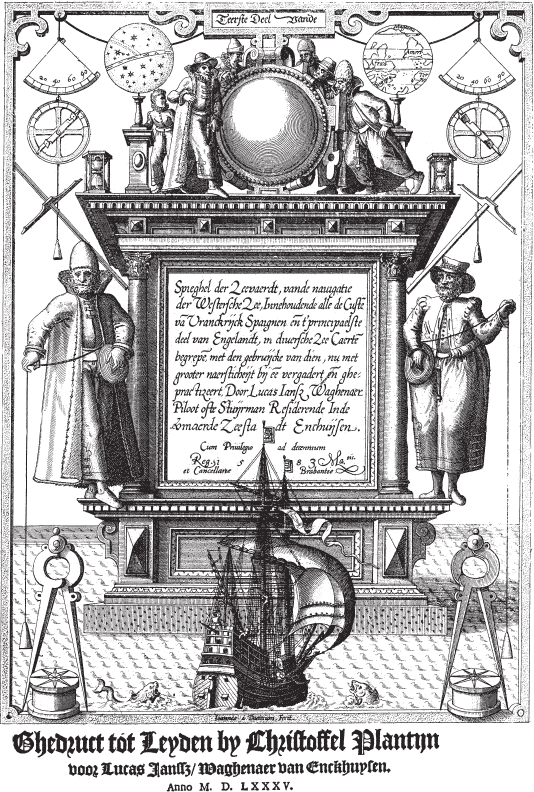 Teerste Deel Vande
20 40 60 80
20 40 60 80
Africa
Spieghel der Zeevaerdt, vande navigatie
der Westersche Zee, Innehoudende alle de Custē
vā Vranckrijck Spaignen eñ t'principaelste
deel van Engelandt, in diversche Zee Caertē
begrepē, met den gebruijcke van dien, nu met
grooter naersticheijt bij eē vergadert eñ ghe-
practizeert, Door Lucas Iansz Waghenaer
Piloot ofte Stuijrman Residerende Inde
vermaerde Zeestadt Enchuijsen.
Cum Privilegio ad decennium
Reg. 5 8 3
et Cancellarie Brabantie
Ioannes a Doetecum, Fecit.
Ghedruct tot Leyden by Christoffel Plantijn
voor Lucas Janssz/ Waghenaer van Enckhuysen.
Anno M. D. LXXXV.